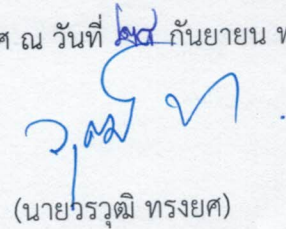 ศ ณ วันที่ ๒๘ กันยายน พ
(นายวรวุฒิ ทรงยศ)